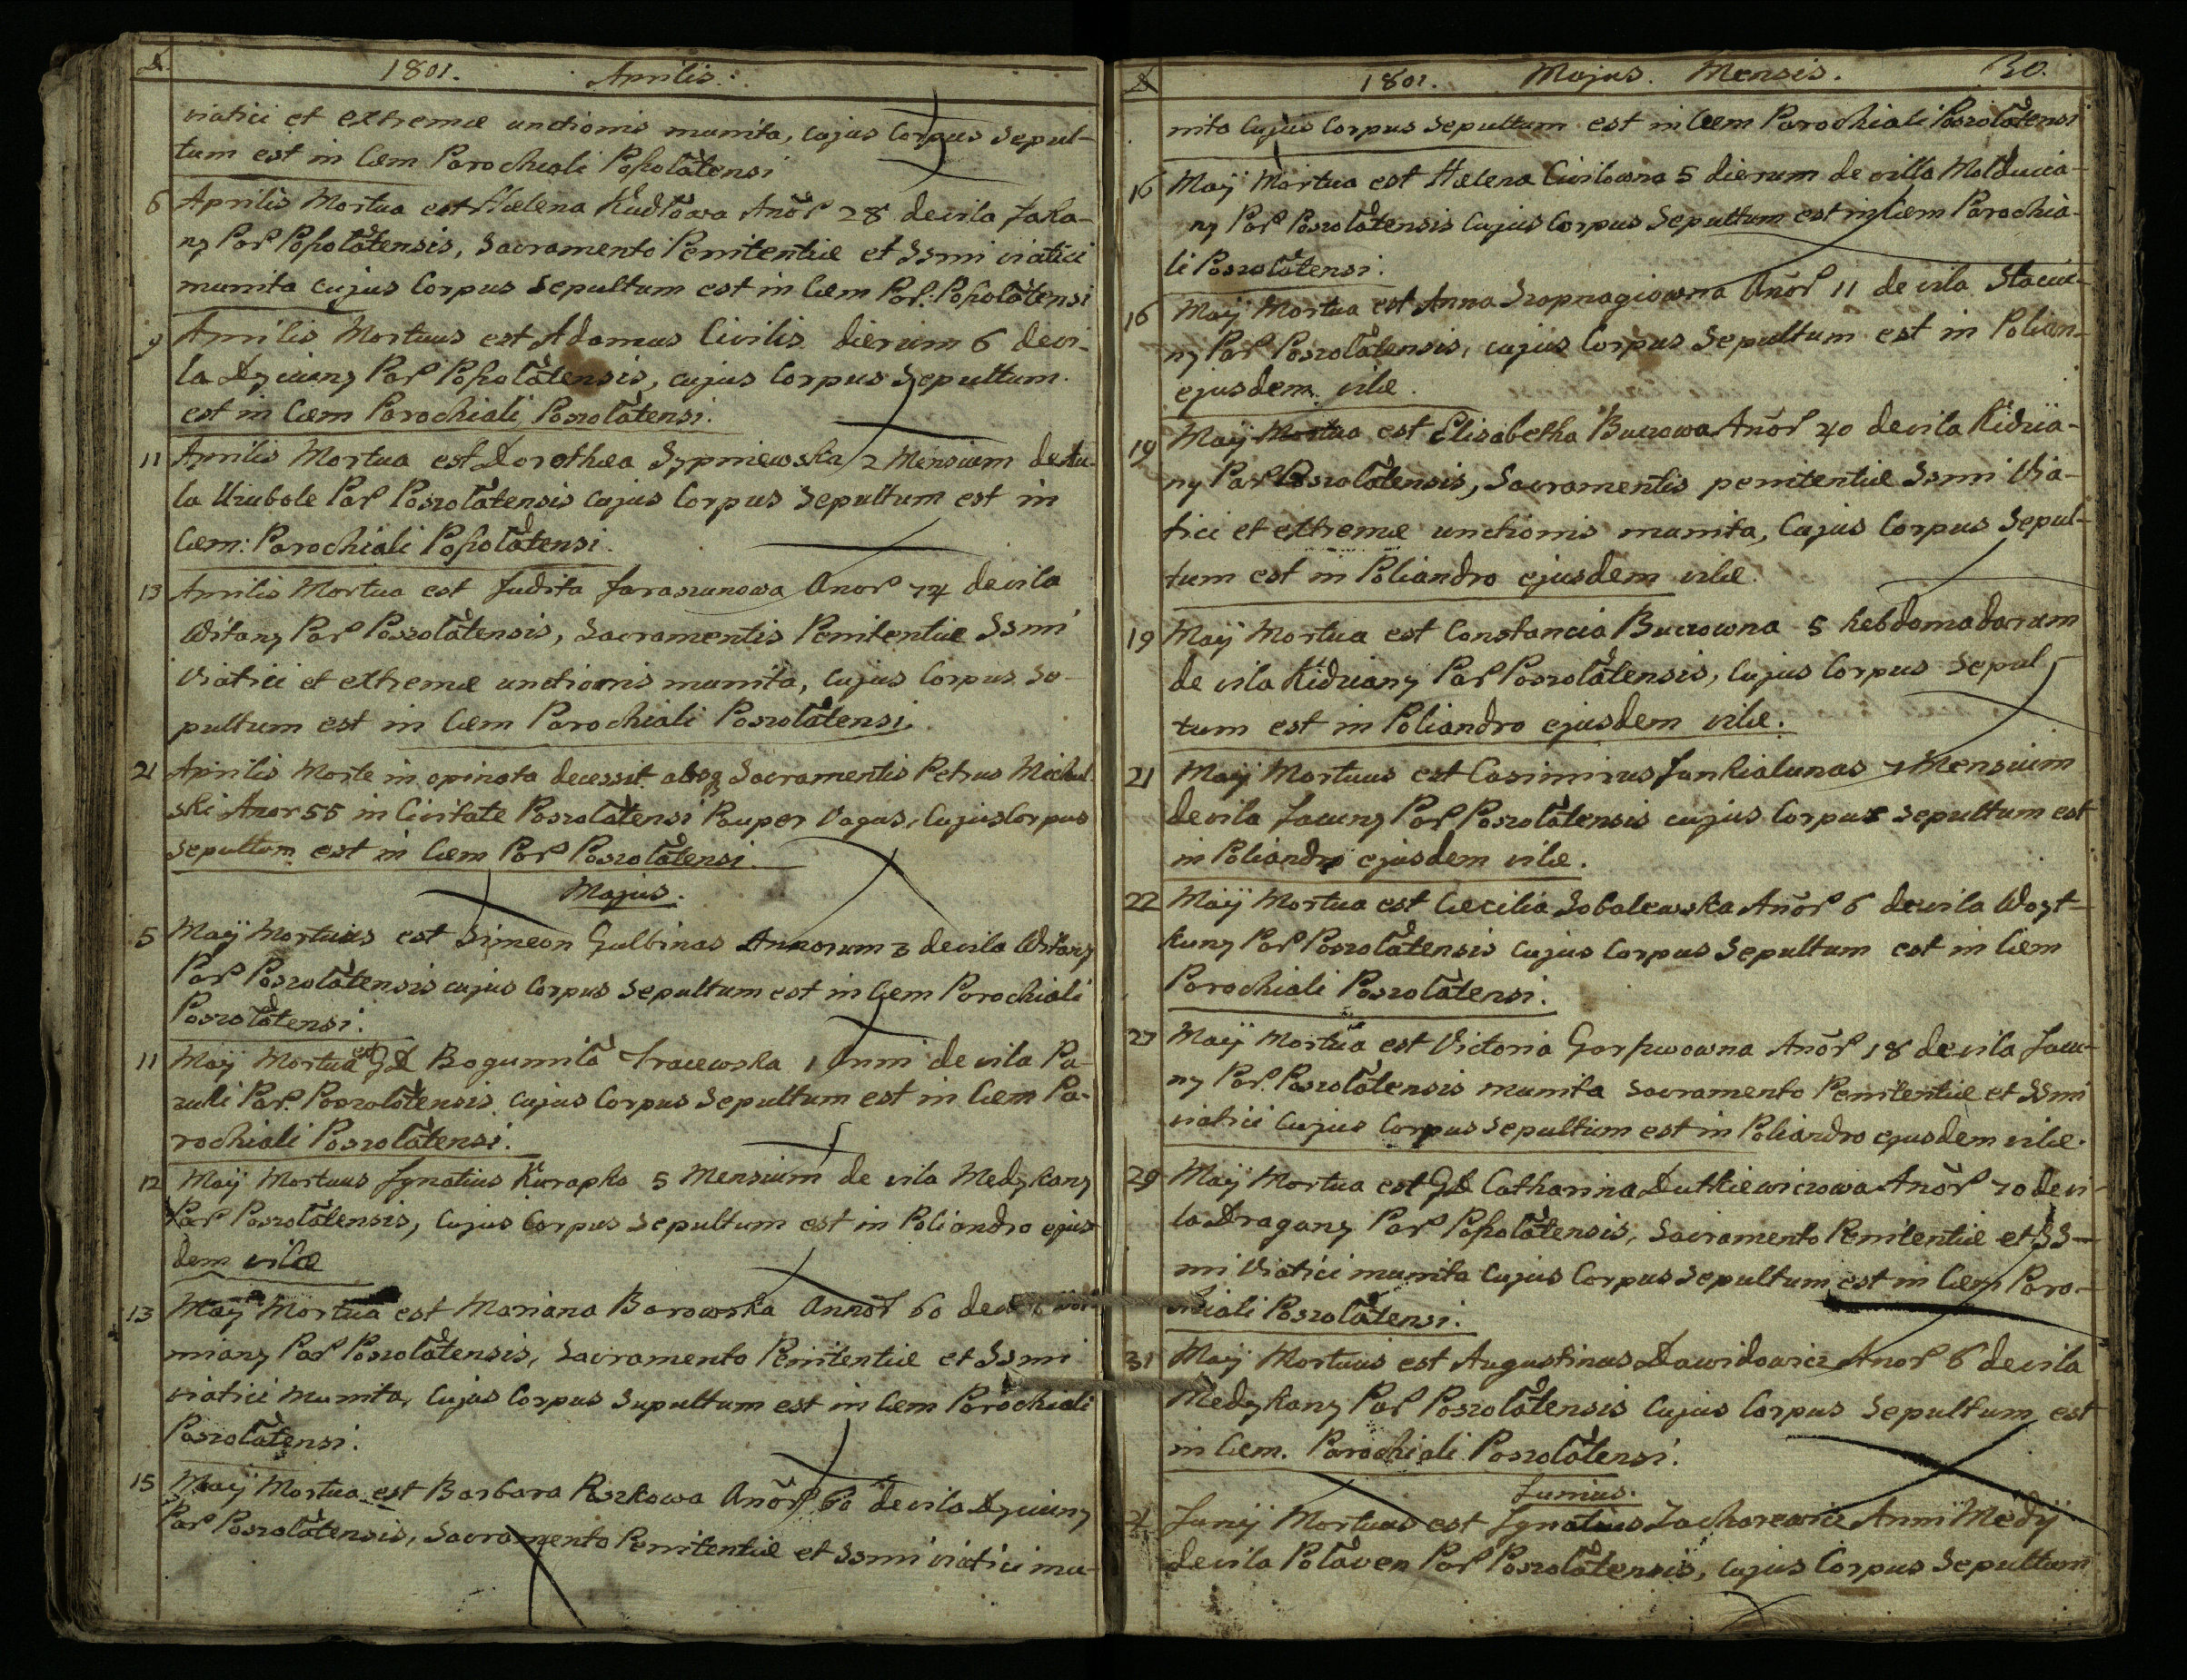 D. 1801. Aprilis.
viatici et extremæ unctionis munita, cujus Corpus Sepul-
tum est in Cæm Parochiali Poßolatensi
6 Aprilis Mortua est Hælena Kudłowa Anor 28 de vila Jaka-
ny Par Poßolatensis, Sacramento Penitentiæ et SSmi viatici
munita cujus Corpus Sepultum est in Cæm Par: Poßolatensi
9 Aprilis Mortuus est Adamus Civilis dierum 6 de vi-
la Dyciuny Par Poßolatensis, cujus Corpus Sepultum
est in Cæm Parochiali Poszolatensi.
11 Aprilis Mortua est Dorothæa Sypniewska 2 Mensium de
la Par Poszolatensis cujus Corpus Sepultum est in
Cæm: Parochiali Poßolatensi.
13 Aprilis Mortua est Judita Jaraszunowa Anor 74 de vila
Witany Par Poszolatensis, Sacramentis Penitentiæ SSmi
Viatici et extremæ unctionis munita, cujus Corpus Se-
pultum est in Cæm Parochiali Poszolatensi.
21 Aprilis Morte in opinata decessit absq Sacramentis Petrus Michul
ski Anor 55 in Civitate Poszolatensi Pauper Vagus, cujus Corpus
Sepultum est in Cæm Par Poszolatensi.
Majus.
5 Maij Mortuus est Simeon Gulbinas Annorum 3 de vila Witany
Par Poszolatensis cujus Corpus Sepultum est in Cæm Parochiali
Poszolatensi.
11 Maij Mortua est GD Bogumiła 1 Anni de vila Pa-
Par. Poszolatensis cujus Corpus Sepultum est in Cæm Pa-
rochiali Poszolatensi.
12 Maij Mortuus Ignatius Kurapka 5 Mensium de vila Medykany
Par Poszolatensis, cujus Corpus Sepultum est in Poliandro ejus
dem vilæ
13 Maij Mortua est Mariana Barowska Annor 60 de
miany Par Poszolatensis, Sacramento Penitentiæ et SSmi
viatici munita, cujus Corpus Supultum est in Cæm Parochiali
Poszolatensi.
15 Maij Mortua est Barbara Roszkowa Anor 60 de vila Dyciuny
Par Poszolatensis, Sacramento Penitentiæ et SSmi viatici mu-
D 1801. Majus. Mensis. 30.
nita cujus Corpus Sepultum est in Cæm Parochiali Poszolatensi
16 Maij Mortua est Hælena Civilowna 5 dierum de villa Molducia-
ny Par Poszolatensis cujus Corpus Sepultum est in Cæm Parochia-
li Poszolatensi.
16 Maij Mortua est Anna Szopnagiowna Anor 11 de vila Staciu-
ny Par Poszolatensis, cujus Corpus Sepultum est in Polian-
ejusdem vilæ.
19 Maij Mortua est Elisabetha Buczowa Anor 40 de vila Kidzia-
ny Par Poszolatensis, Sacramentis penitentiæ SSmi Via-
tici et extremæ unctionis munita, Cujus Corpus Sepul-
tum est in Poliandro ejusdem vilæ.
19 Maij Mortua est Constancia Buczowna 5 hebdomadarum
de vila Kidziany Par Poszolatensis, cujus Corpus Sepul
tum est in Poliandro ejusdem vilæ.
21 Maij Mortuus est Casimirus Junkialunas 7 Mensium
de vila Jacuny Par Poszolatensis cujus Corpus sepultum est
in Poliandro ejusdem vilæ.
22 Maij Mortua est Cæcilia Sobolewska Anor 6 de vila Woyt-
kuny Par Poszolatensis cujus Corpus Sepultum est in Cæm
Parochiali Poszolatensi.
27 Maij Mortua est Victoria Anor 18 de vila Jacu-
ny Par. Poszolatensis munita Sacramento Penitentiæ et SSmi
viatici cujus Corpus Sepultum est in Poliandro ejusdem vilæ.
29 Maij Mortua est GD Catharina Dutkiewiczowa Anor 70 de vi-
la Dragany Par Poßolatensis, Sacramento Penitentiæ et SS-
mi Viatici munita cujus Corpus Sepultum est in Cæm Paro-
chiali Poszolatensi.
31 Maij Mortuus est Augustinus Dawidowicz Anor 6 de vila
Medykany Par Poszolatensis cujus Corpus Sepultum est
in Cæm. Parochiali Poszolatensi.
Junius.
2 Junij Mortuus est Ignatius Zacharewicz Anni Medij
de vila Polaven Par Poszolatensis, cujus Corpus Sepultum